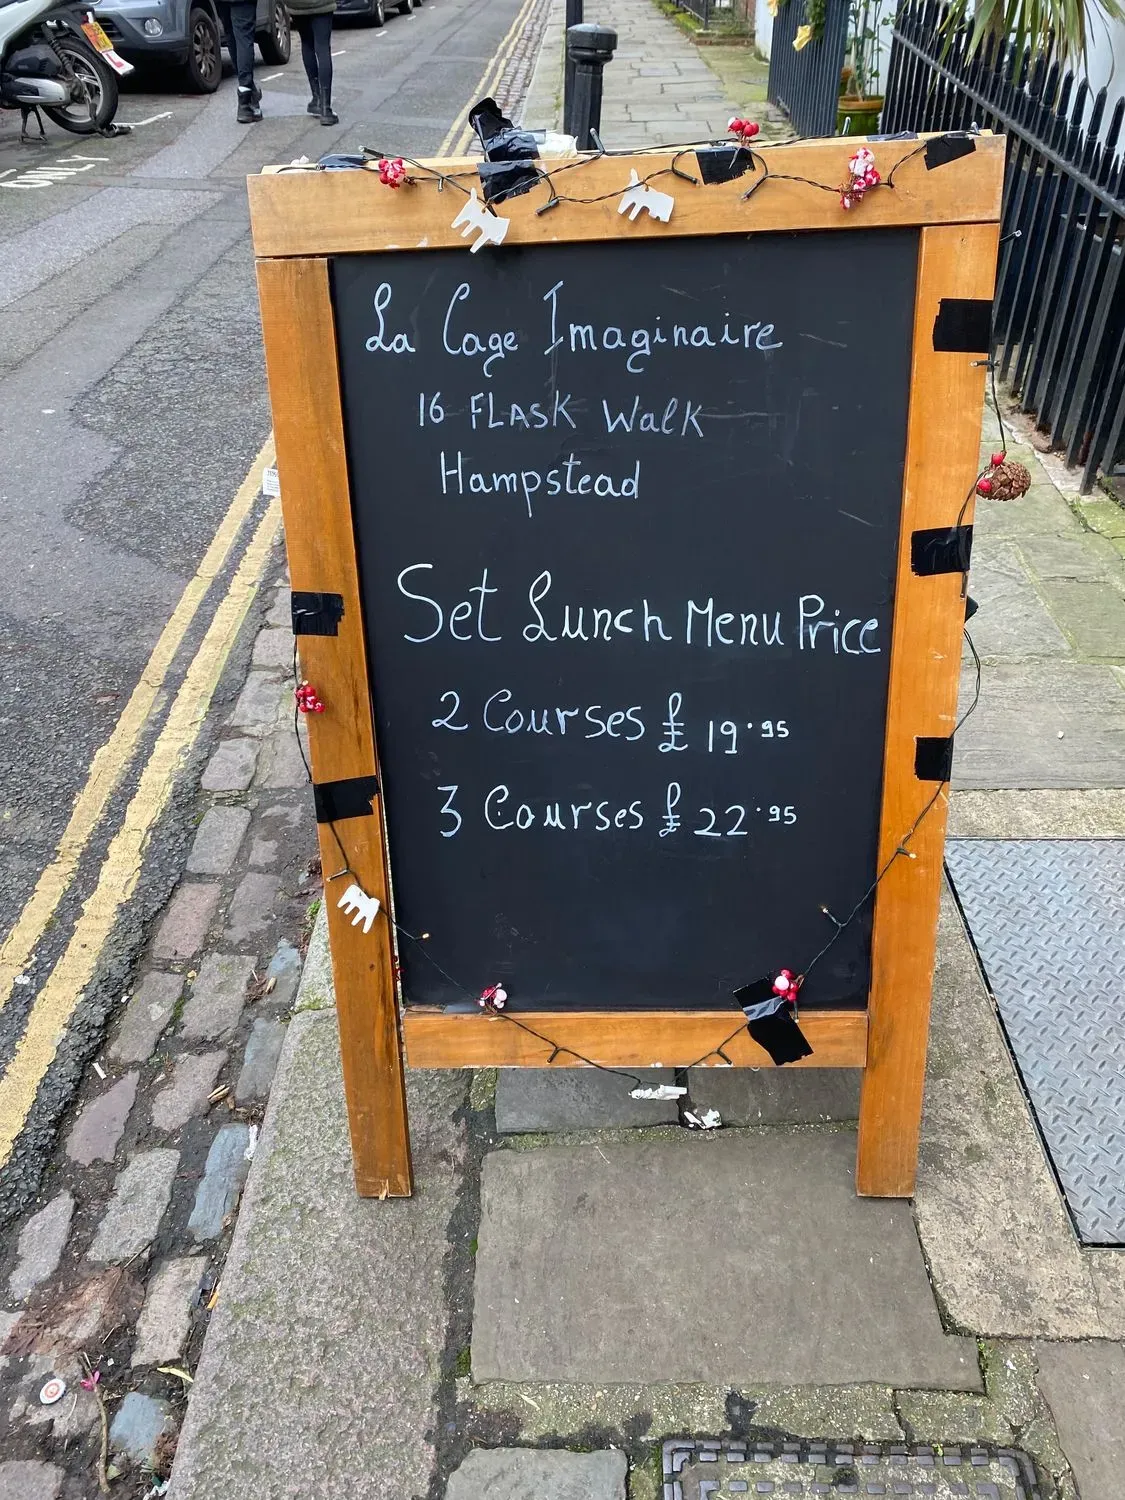 La Cage Imaginaire
16 FLASK Walk
Hampstead
Set Lunch Menu Price
2 Courses £19.95
3 Courses £22.95
ONLY